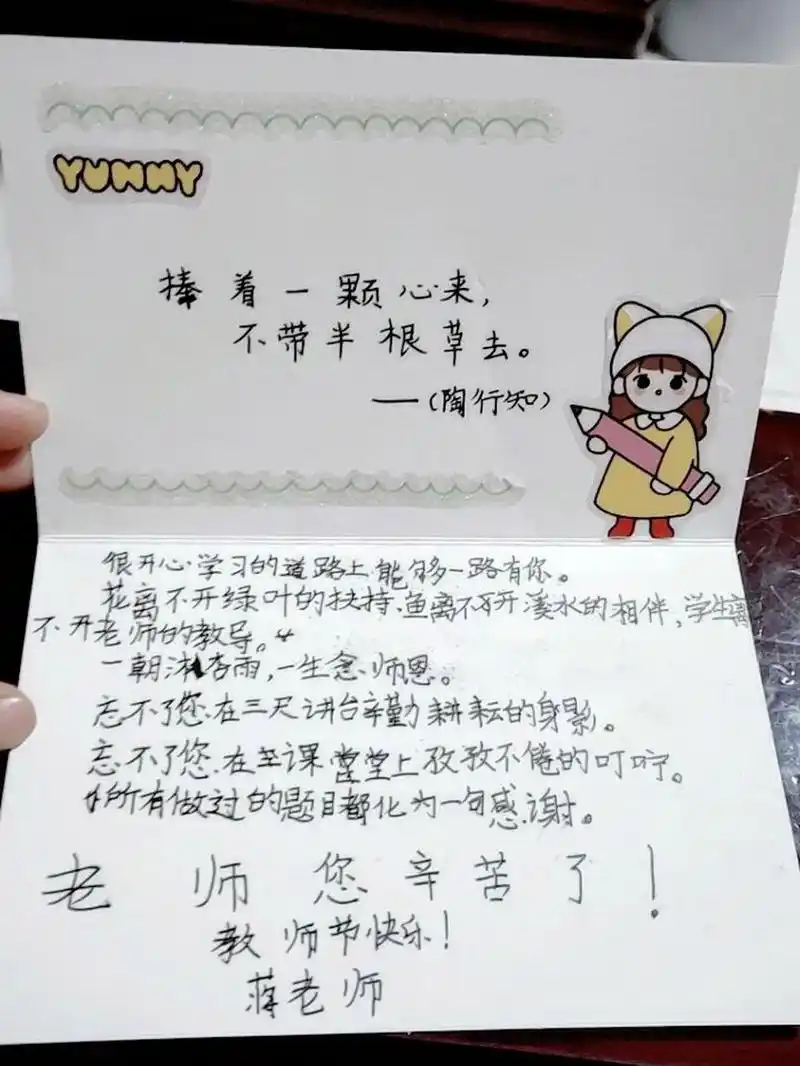 YUMMY
捧着一颗心来,
不带半根草去。
——(陶行知)
很开心学习的道路上能够一路有你。
花离不开绿叶的扶持,鱼离不开溪水的相伴,学生离
不开老师的教导。
一朝沐杏雨,一生念师恩。
忘不了您在三尺讲台辛勤耕耘的身影。
忘不了您在课堂上孜孜不倦的叮咛。
所有做过的题目都化为一句感谢。
老师您辛苦了!
教师节快乐!
蒋老师